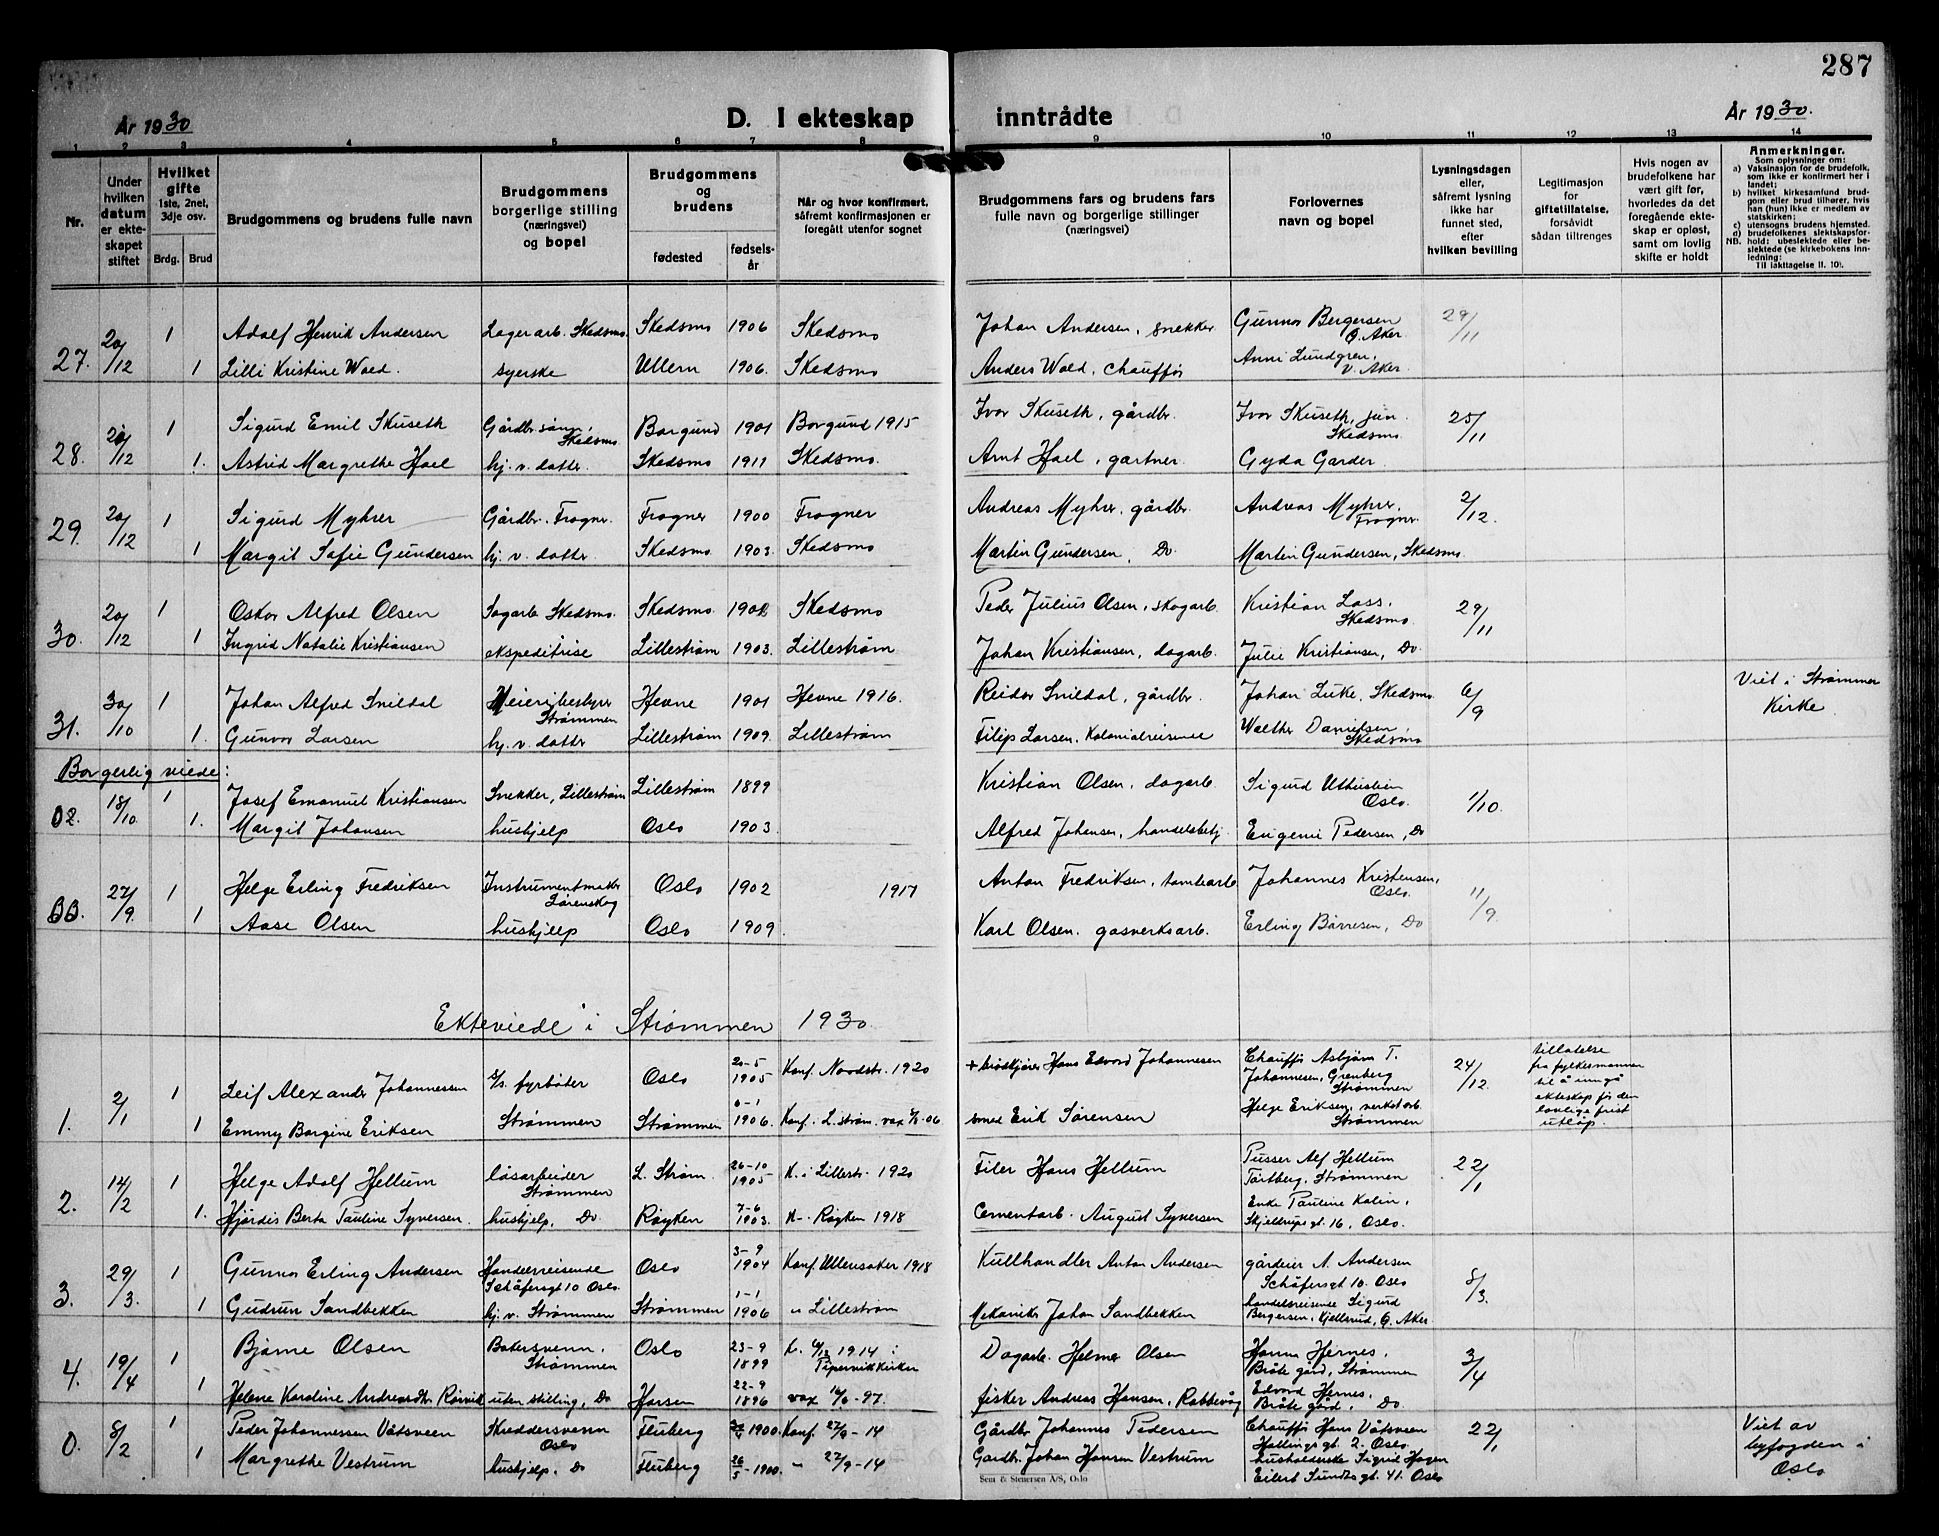 287
År 1930
D. I ekteskap inntrådte
År 1930.
1 2 3 4 5 6 7 8 9 10 11 12 13 14
Nr.
Under hvilken datum er ekteskapet stiftet
Hvilket gifte 1ste, 2net, 3dje osv.
Brdg. Brud
Brudgommens og brudens fulle navn
Brudgommens borgerlige stilling (næringsvei) og bopel
Brudgommens og brudens
fødested
fødselsår
Når og hvor konfirmert, såfremt konfirmasjonen er foregått utenfor sognet
Brudgommens fars og brudens fars fulle navn og borgerlige stillinger (næringsvei)
Forlovernes navn og bopel
Lysningsdagen eller, såfremt lysning ikke har funnet sted, efter hvilken bevilling
Legitimasjon for giftetillatelse, forsåvidt sådan tiltrenges
Hvis nogen av brudefolkene har vært gift før, hvorledes da det foregående ekteskap er opløst, samt om lovlig skifte er holdt
Anmerkninger.
Som oplysninger om:
a) Vaksinasjon for de brudefolk, som ikke er konfirmert her i landet;
b) hvilket kirkesamfund brudgom eller brud tilhører, hvis han (hun) ikke er medlem av statskirken;
c) utensogns brudens hjemsted.
d) brudefolkenes slektskapsforhold: ubeslektede eller beslektede (se kirkebokens innledning:
NB.
Til iakttagelse II. 10).
27. 20/12 1 Adolf Henrik Andersen Lagerarb. Skedsmo. Skedsmo 1906 Skedsmo Johan Andersen, snekker Gunnar Bergersen Ø. Aker. 29/11
1 Lilli Kristine Wold. syerske Ullern 1906. Skedsmo Anders Wold, chauffør Anni Lundgren, V. Aker.
28. 20/12 1 Sigurd Emil Skuseth Gårdbr.sønn, Skedsmo. Borgund 1901 Borgund 1915 Ivar Skuseth, gårdbr. Ivar Skuseth, jun. Skedsmo. 25/11
1. Astrid Margrethe Hoel hj. v. datter. Skedsmo 1911 Skedsmo. Arnt Hoel, gartner. Gyda Garder.
29. 20/12 1 Sigurd Myhrer Gårdbr. Frogner. Frogner 1900 Frogner Andreas Myhrer, gårdbr. Andreas Myhrer, Frogner. 2/12.
1 Margit Sofie Gundersen hj. v. datter. Skedsmo 1903. Skedsmo Martin Gundersen, Do. Martin Gundersen, Skedsmo
30. 20/12 1 Oskar Alfred Olsen Sagarb. Skedsmo. Skedsmo. Skedsmo Peder Julius Olsen, skogarb. Kristian Lass, Skedsmo 29/11
1 Ingrid Natalie Kristiansen ekspeditrise Lillestrøm 1903. Lillestrøm Johan Kristiansen, dagarb. Julie Kristiansen, Do.
31. 30/10 1 Johan Alfred Snildal Meieribestyrer Strømmen Hevne 1901 Hevne 1916. Reidar Snildal, gårdbr. Johan Luke, Skedsmo. 6/9 Viet i Strømmen Kirke
1. Gunvor Larsen hj. v. datter Lillestrøm 1909. Lillestrøm Filip Larsen, Kolonialreisende Walther Danielsen, Skedsmo
Borgerlig viede:
02. 18/10 1 Josef Emanuel Kristiansen Snekker, Lillestrøm Lillestrøm 1899 Kristian Olsen, dagarb. Sigurd Oslo. 1/10.
1. Margit Johansen hushjelp Oslo 1903. Alfred Johansen, handelsbetj. Eugenie Pedersen, Do
BB. 27/9 1 Helge Erling Fredriksen Instrumentmaker Lørenskog Oslo 1902 1917 Anton Fredriksen, tomtearb. Johannes Kristensen, Oslo. 11/9.
1 Aase Olsen hushjelp Oslo 1909. Karl Olsen. gasverksarb. Erling Børresen, Do
Ekteviede i Strømmen 1930.
1. 2/1 1 Leif Alexander Johannessen s/s. fyrbøter Oslo 20-5 1905 Konf. Nordstr. 1920 + brødkjører Hans Edvard Johannesen Chauffør Asbjørn T. Johannesen, Grenberg Strømmen 24/12. tillatelse fra fylkesmannen til å inngå ekteskap før den lovlige frist utløp.
1 Emmy Borgine Eriksen Strømmen Strømmen 6-1 1906. Konf. L.strøm. smed Erik Sørensen Helge Eriksen, verkstarb. Strømmen
2. 14/2 1 Helge Adolf Hellum låsarbeider Strømmen L. Strøm. 26-10 1905 K. i Lillestr. 1920 Filer Hans Hellum Pusser Alf Hellum Tårtberg, Strømmen 22/1
1. Hjørdis Berta Pauline Syversen. hushjelp, Do Røyken 7-6 1903. K - Røyken 1918 Cementarb. August Syversen Enke Pauline Kolin, Skjeldrups gt. 16, Oslo.
3. 29/3. 1 Gunnar Erling Andersen Handelsreisende Schäfersgt 10 Oslo. Oslo 3-9 1904 Konf. Ullensaker 1918 Kullhandler Anton Andersen gårdeier A. Andersen Schäfersgt 10. Oslo 8/3.
1 Gudrun Sandbekken hj. v. Strømmen Strømmen 1-1 1906 " Lillestrøm Mekaniker Johan Sandbekken handelsreisende Sigurd Bergersen, Kjellsrud, Ø. Aker
4. 19/4 1 Bjarne Olsen Bakersvenn, Strømmen Oslo 23-9 1899 K. 1914 i Pipervikkirken Dagarb. Helmer Olsen Hanna Hernes, Bråte gård, Strømmen 3/4
1 Helene Karoline Andreasdtr. Rørvik uten stilling, Do Harsen 22-9 1896 vax Fisker Andreas Hansen, Rabbevåg Edvard Hernes, Bråte gård, Do.
0. 8/2 1 Peder Johannessen Våtsveen Skreddersvenn Oslo Fluberg 1900. Konf. 27/9-14 Gårdbr Johannes Pedersen Chauffør Hans Våtsveen Hallings gt. 2. Oslo 22/1 Viet av byfogden i Oslo
1 Margrethe Vestrum hushjelp, Do Fluberg 26/5-1900. " 27/9-14 Gårdbr. Johan Hansen Vestrum husholderske Sigrid Hagen Eilert Sundts gt. 41. Oslo
Sem & Stenersen A/S, Oslo